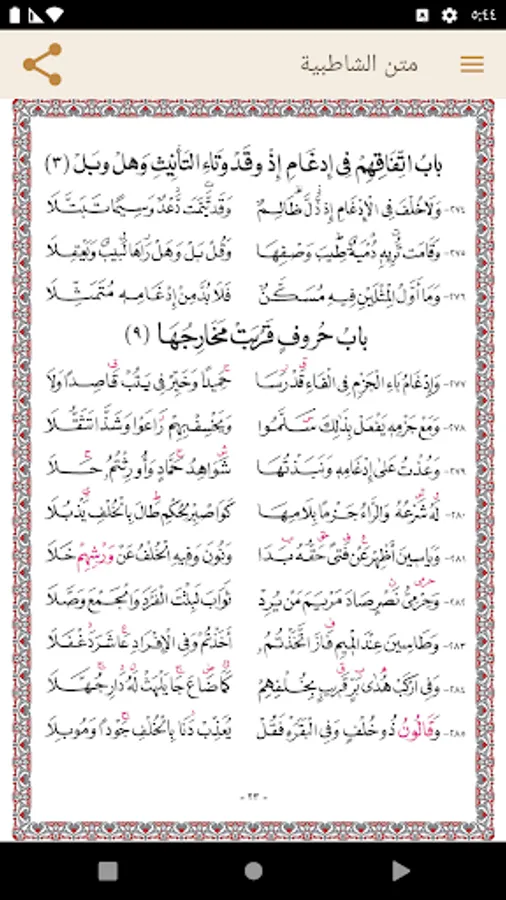 ٥:٤٤
متن الشاطبية
بابُ اتِّفَاقِهِمْ فِي إِدغَامِ إِذْ وقَدْ وتَاءِ التَأنِيثِ وَهلْ وبَلْ (٣)
٢٧٤- وَلاَ خُلْفَ فِي الإِدْغَامِ إِذْ ذَلَّ ظَالِمٌ وَقَدْ تَيَّمَتْ دَعْدٌ وَسِيمًا تَبَتَّلَا
٢٧٥- وَقَامَتْ تُرِيهِ دُمْيَةٌ طِيبَ وَصْفِهَا وَقُلْ بَلْ وَهَلْ رَاهَا لَبِيبٌ وَيَعْقِلَا
٢٧٦- وَمَا أَوَّلُ المِثْلَيْنِ فِيهِ مُسَكَّنٌ فَلَا بُدَّ مِنْ إِدْغَامِهِ مُتَمَثِّلَا
بابُ حُرُوفٍ قَرُبَتْ مَخَارِجُهَا (٩)
٢٧٧- وَإِدْغَامُ بَاءِ الْجَزْمِ فِي الْفَاءِ قَدْ رَسَا حَمِيدًا وَخَيِّرْ فِي يَتُبْ قَاصِدًا وَلَا
٢٧٨- وَمَعْ جَزْمِهِ يَفْعَلْ بِذَلِكَ سَلَّمُوا وَيَخْسِفْ بِهِمْ رَاعَوْا وَشَذَّا تَثَقُّلَا
٢٧٩- وَعُذْتُ عَلَى إِدْغَامِهِ وَنَبَذْتُهَا شَوَاهِدُ حَمَّادٍ وَأُورِثْتُمُ حَلَا
٢٨٠- لَهُ شَرْعُهُ وَالرَّاءُ جَزْمًا بِلَامِهَا كَوَاصْبِرْ لِحُكْمِ طَالَ بِالْخُلْفِ يَذْبُلَا
٢٨١- وَيَاسِينَ أَظْهِرْ عَنْ فَتًى حَقُّهُ بَدَا وَنُونَ وَفِيهِ الْخُلْفُ عَنْ وَرْشِهِمْ خَلَا
٢٨٢- وَحِرْمِيُّ نَصْرٍ صَادَ مَرْيَمَ مَنْ يُرِدْ ثَوَابَ لَبِثْتَ الْفَرْدَ وَالْجَمْعَ وَصَّلَا
٢٨٣- وَطَاسِينَ عِنْدَ الْمِيمِ فَازَ اتَّخَذْتُمُ، أَخَذْتُمْ وَفِي الإِفْرَادِ عَاشَرَ دَغْفَلَا
٢٨٤- وَفِي ارْكَبْ هُدَى بَرٍّ قَرِيبٍ بِخُلْفِهِمْ كَمَا ضَاعَ جَا يَلْهَثْ لَهُ دَارِ جُهَّلَا
٢٨٥- وَقَالُونُ ذُو خُلْفٍ وَفِي الْبَقَرَهْ فَقُلْ يُعَذِّبْ دَنَا بِالْخُلْفِ جَوْدًا وَمُوبِلَا
- ٢٣ -